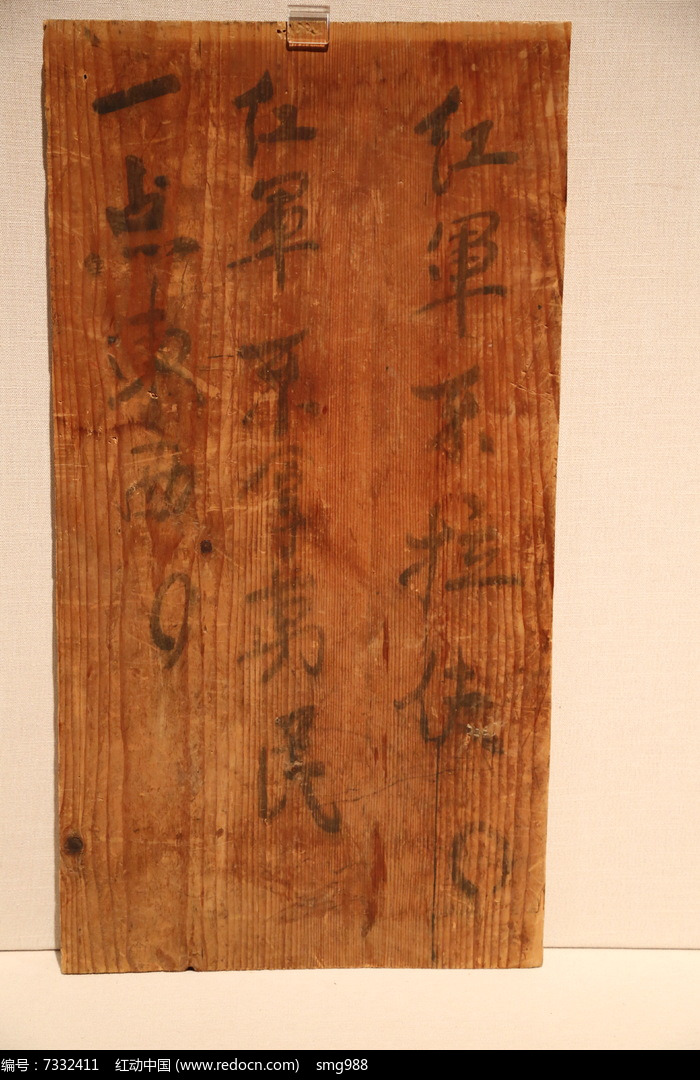 红軍不拉伕。
红軍不拿民
一点東西。
编号：7332411 红动中国 (www.redocn.com) smg988